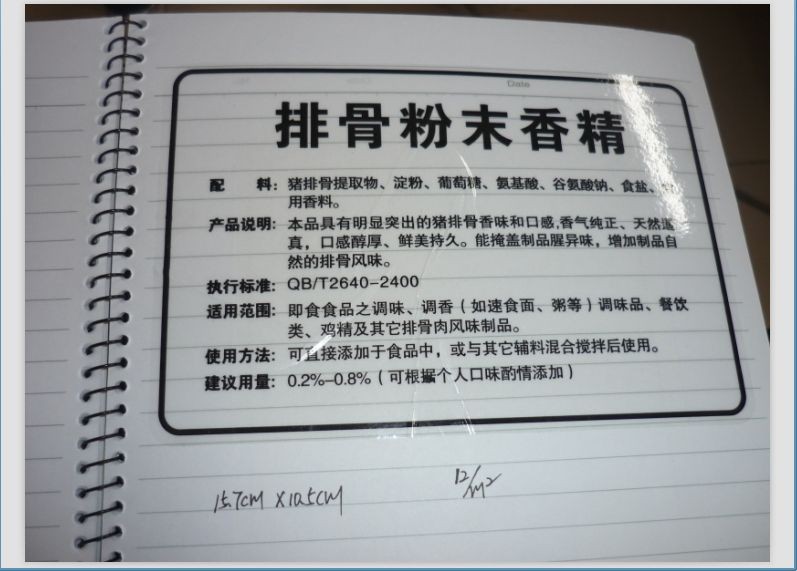 Date
排骨粉末香精
配 料：猪排骨提取物、淀粉、葡萄糖、氨基酸、谷氨酸钠、食盐、
用香料。
产品说明：本品具有明显突出的猪排骨香味和口感,香气纯正、天然逼
真，口感醇厚、鲜美持久。能掩盖制品腥异味，增加制品自
然的排骨风味。
执行标准：QB/T2640-2400
适用范围：即食食品之调味、调香（如速食面、粥等）调味品、餐饮
类、鸡精及其它排骨肉风味制品。
使用方法：可直接添加于食品中，或与其它辅料混合搅拌后使用。
建议用量：0.2%–0.8%（可根据个人口味酌情添加）
15.7CM X10.5CM
12/M2